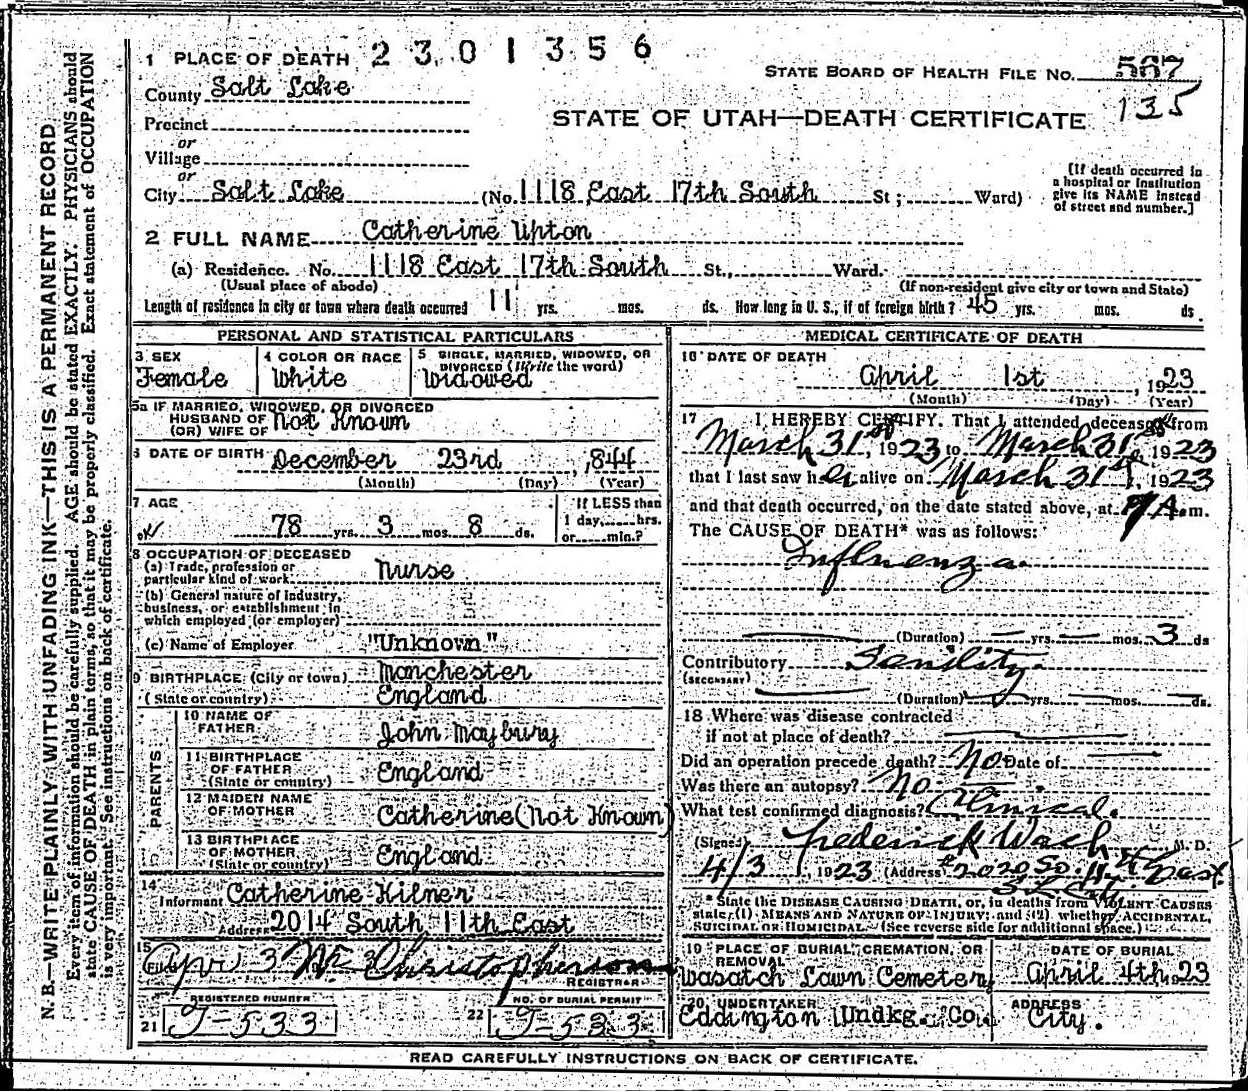 1 PLACE OF DEATH 2301356
STATE BOARD OF HEALTH FILE No. 567
County Salt Lake
135
STATE OF UTAH—DEATH CERTIFICATE
Precinct
or
Village
or
City Salt Lake (No. 1118 East 17th South St; Ward)
[If death occurred in
a hospital or institution
give its NAME instead
of street and number.]
2 FULL NAME Catherine Upton
(a) Residence. No. 1118 East 17th South St., Ward.
(Usual place of abode) (If non-resident give city or town and State)
Length of residence in city or town where death occurred 11 yrs. mos. ds. How long in U. S., if of foreign birth? 45 yrs. mos. ds.
PERSONAL AND STATISTICAL PARTICULARS
3 SEX
Female
4 COLOR OR RACE
White
5 SINGLE, MARRIED, WIDOWED, OR
DIVORCED (Write the word)
Widowed
5a IF MARRIED, WIDOWED, OR DIVORCED
HUSBAND OF
(OR) WIFE OF Not Known
6 DATE OF BIRTH December 23rd, 1844
(Month) (Day) (Year)
7 AGE
78 yrs. 3 mos. 8 ds.
If LESS than
1 day, hrs.
or min.?
8 OCCUPATION OF DECEASED
(a) Trade, profession or
particular kind of work Nurse
(b) General nature of industry,
business, or establishment in
which employed (or employer)
(c) Name of Employer "Unknown"
9 BIRTHPLACE (City or town) Manchester
(State or country) England
PARENTS
10 NAME OF
FATHER John Maybury
11 BIRTHPLACE
OF FATHER
(State or country) England
12 MAIDEN NAME
OF MOTHER Catherine (Not Known)
13 BIRTHPLACE
OF MOTHER
(State or country) England
14
Informant Catherine Kilner
Address 2014 South 11th East
15
Filed Apr 3 Christopherson
REGISTRAR
REGISTERED NUMBER
21 T-533
NO. OF BURIAL PERMIT
22 T-533
MEDICAL CERTIFICATE OF DEATH
16 DATE OF DEATH
April 1st, 1923
(Month) (Day) (Year)
17 I HEREBY CERTIFY, That I attended deceased from
March 31st, 1923 to March 31st, 1923
that I last saw her alive on March 31st, 1923
and that death occurred, on the date stated above, at 7 A.m.
The CAUSE OF DEATH* was as follows:
Influenza.
(Duration) yrs. mos. 3 ds
Contributory Senility.
(SECONDARY)
(Duration) yrs. mos. ds.
18 Where was disease contracted
if not at place of death?
Did an operation precede death? No Date of
Was there an autopsy? No.
What test confirmed diagnosis? Clinical.
(Signed) Frederick Wach M. D.
4/3, 1923 (Address) #2020 So. 11th East.
S L City.
* State the DISEASE CAUSING DEATH, or, in deaths from VIOLENT CAUSES
state (1) MEANS AND NATURE OF INJURY; and (2) whether ACCIDENTAL,
SUICIDAL OR HOMICIDAL. (See reverse side for additional space.)
19 PLACE OF BURIAL, CREMATION, OR
REMOVAL
Wasatch Lawn Cemetery
DATE OF BURIAL
April 4th 1923
20 UNDERTAKER
Eddington Undkg. Co.
ADDRESS
City.
READ CAREFULLY INSTRUCTIONS ON BACK OF CERTIFICATE.
N. B.—WRITE PLAINLY, WITH UNFADING INK—THIS IS A PERMANENT RECORD
Every item of information should be carefully supplied. AGE should be stated EXACTLY. PHYSICIANS should
state CAUSE OF DEATH in plain terms, so that it may be properly classified. Exact statement of OCCUPATION
is very important. See instructions on back of certificate.